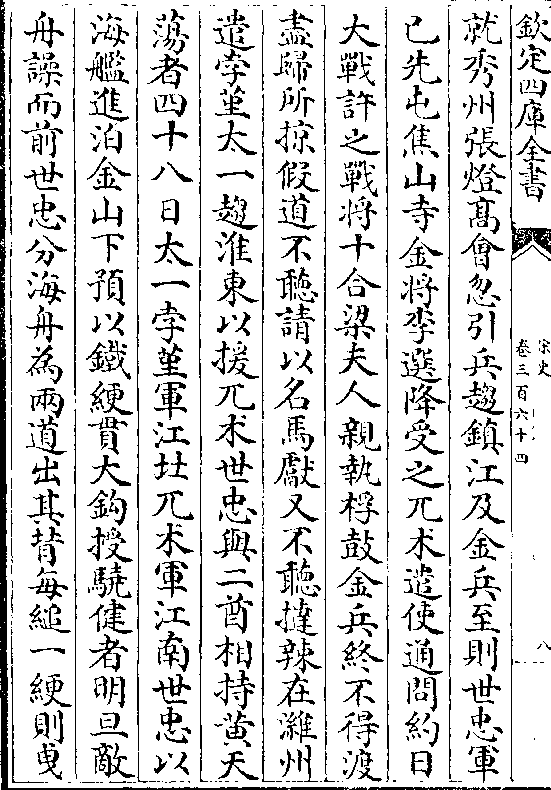 欽定四庫全書
宋史
卷三百六十四
八
就秀州張燈髙㑹忽引兵趨鎮江及金兵至則世忠軍
已先屯焦山寺金將李選降受之兀术遣使通問約日
大戰許之戰將十合梁夫人親執桴鼓金兵終不得渡
盡歸所掠假道不聽請以名馬獻又不聽撻辣在濰州
遣孛堇太一趨淮東以援兀术世忠與二酋相持黄天
蕩者四十八日太一孛堇軍江北兀术軍江南世忠以
海艦進泊金山下預以鐵綆貫大鈎授驍健者明旦敵
舟譟而前世忠分海舟為兩道出其背每縋一綆則曵